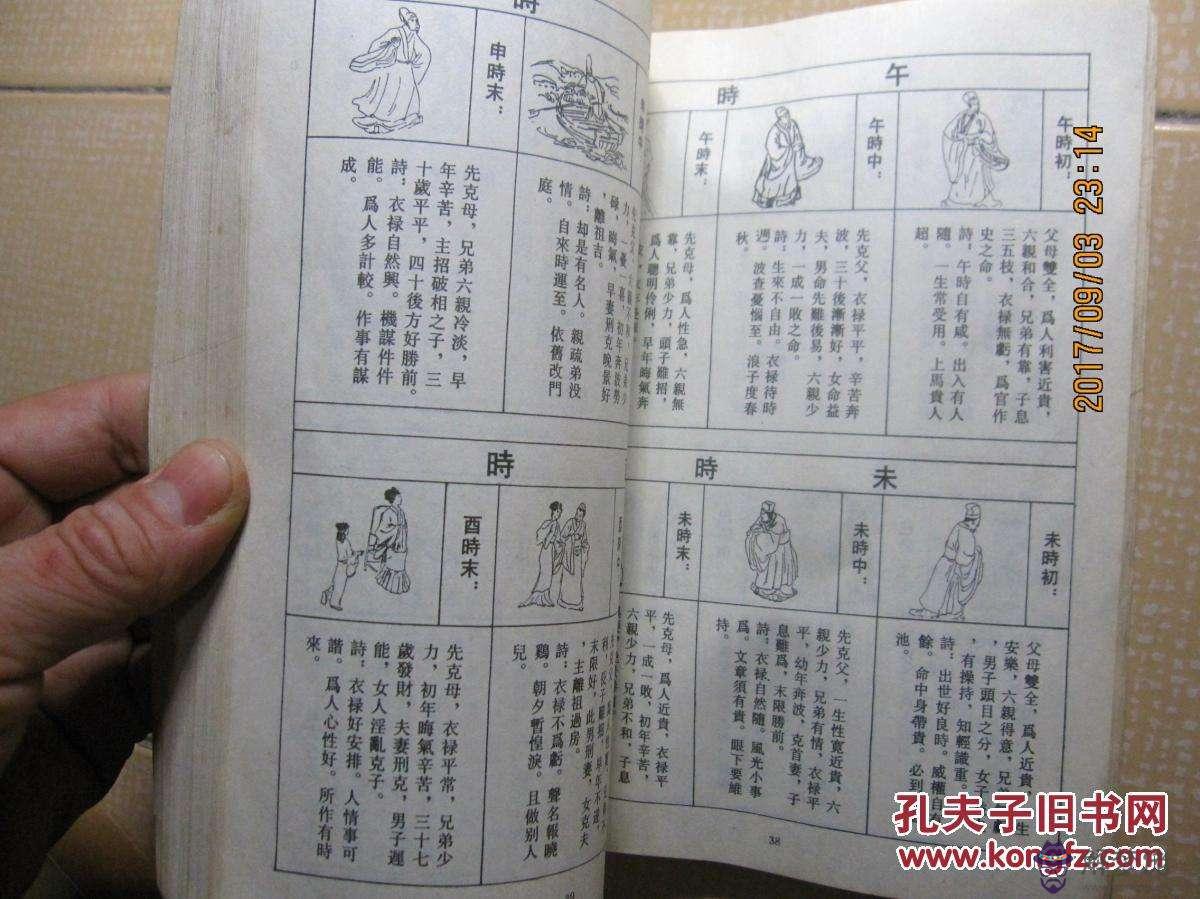 午
時
午時初：
父母雙全，爲人利害近貴，
六親和合，兄弟有靠，子息
三五枝，衣禄無虧，爲官作
史之命。
詩：午時自有咸。出入有人
隨。一生常受用。上馬貴人
超。
午時中：
先克父，衣禄平平，辛苦奔
波，三十後漸漸好，女命益
夫，男命先難後易，六親少
力，一成一敗之命。
詩：生來不自由。衣禄待時
週。波查憂惱至。浪子度春
秋。
午時末：
先克母，爲人性急，六親無
靠，兄弟少力，頭子難招，
爲人聰明伶俐，早年晦氣奔
未
時
未時初：
父母雙全，爲人近貴，
安樂，六親得意，兄
，男子頭目之分，女子
，有操持，知輕識重。
詩：出世好良時。威權自
餘。命中身帶貴。必到
池。
未時中：
先克父，一生性寬近貴，六
親少力，兄弟有情，衣禄平
平，幼年奔波，克首妻，子
息難爲，末限勝前。
詩：衣禄自然隨。風光小事
爲。文章須有貴。眼下要維
持。
未時末：
先克母，爲人近貴，衣禄平
平，一成一敗，初年辛苦，
六親少力，兄弟不和，子息
38
時
力，一憂一喜，初年奔波勞
碌，晦氣，早妻刑克晚景好
，離祖吉。
詩：却是有名人。親疏弟没
情。自來時運至。依舊改門
庭。
申時末：
先克母，兄弟六親冷淡，早
年辛苦，主招破相之子，三
十歲平平，四十後方好勝前。
詩：衣禄自然興。機謀件件
能。爲人多計較。作事有謀
成。
時
末限好，此男刑妻，女克夫
，主離祖過房。
詩：衣禄不爲虧。聲名報曉
鷄。朝夕暫惶淚。且做别人
兒。
酉時末：
先克母，衣禄平常，兄弟少
力，初年晦氣辛苦，三十七
歲發財，夫妻刑克，男子遲
能，女人淫亂克子。
詩：衣禄好安排。人情事可
諧。爲人心性好。所作有時
來。
2017/09/03 23:14
孔夫子旧书网
www.kongfz.com